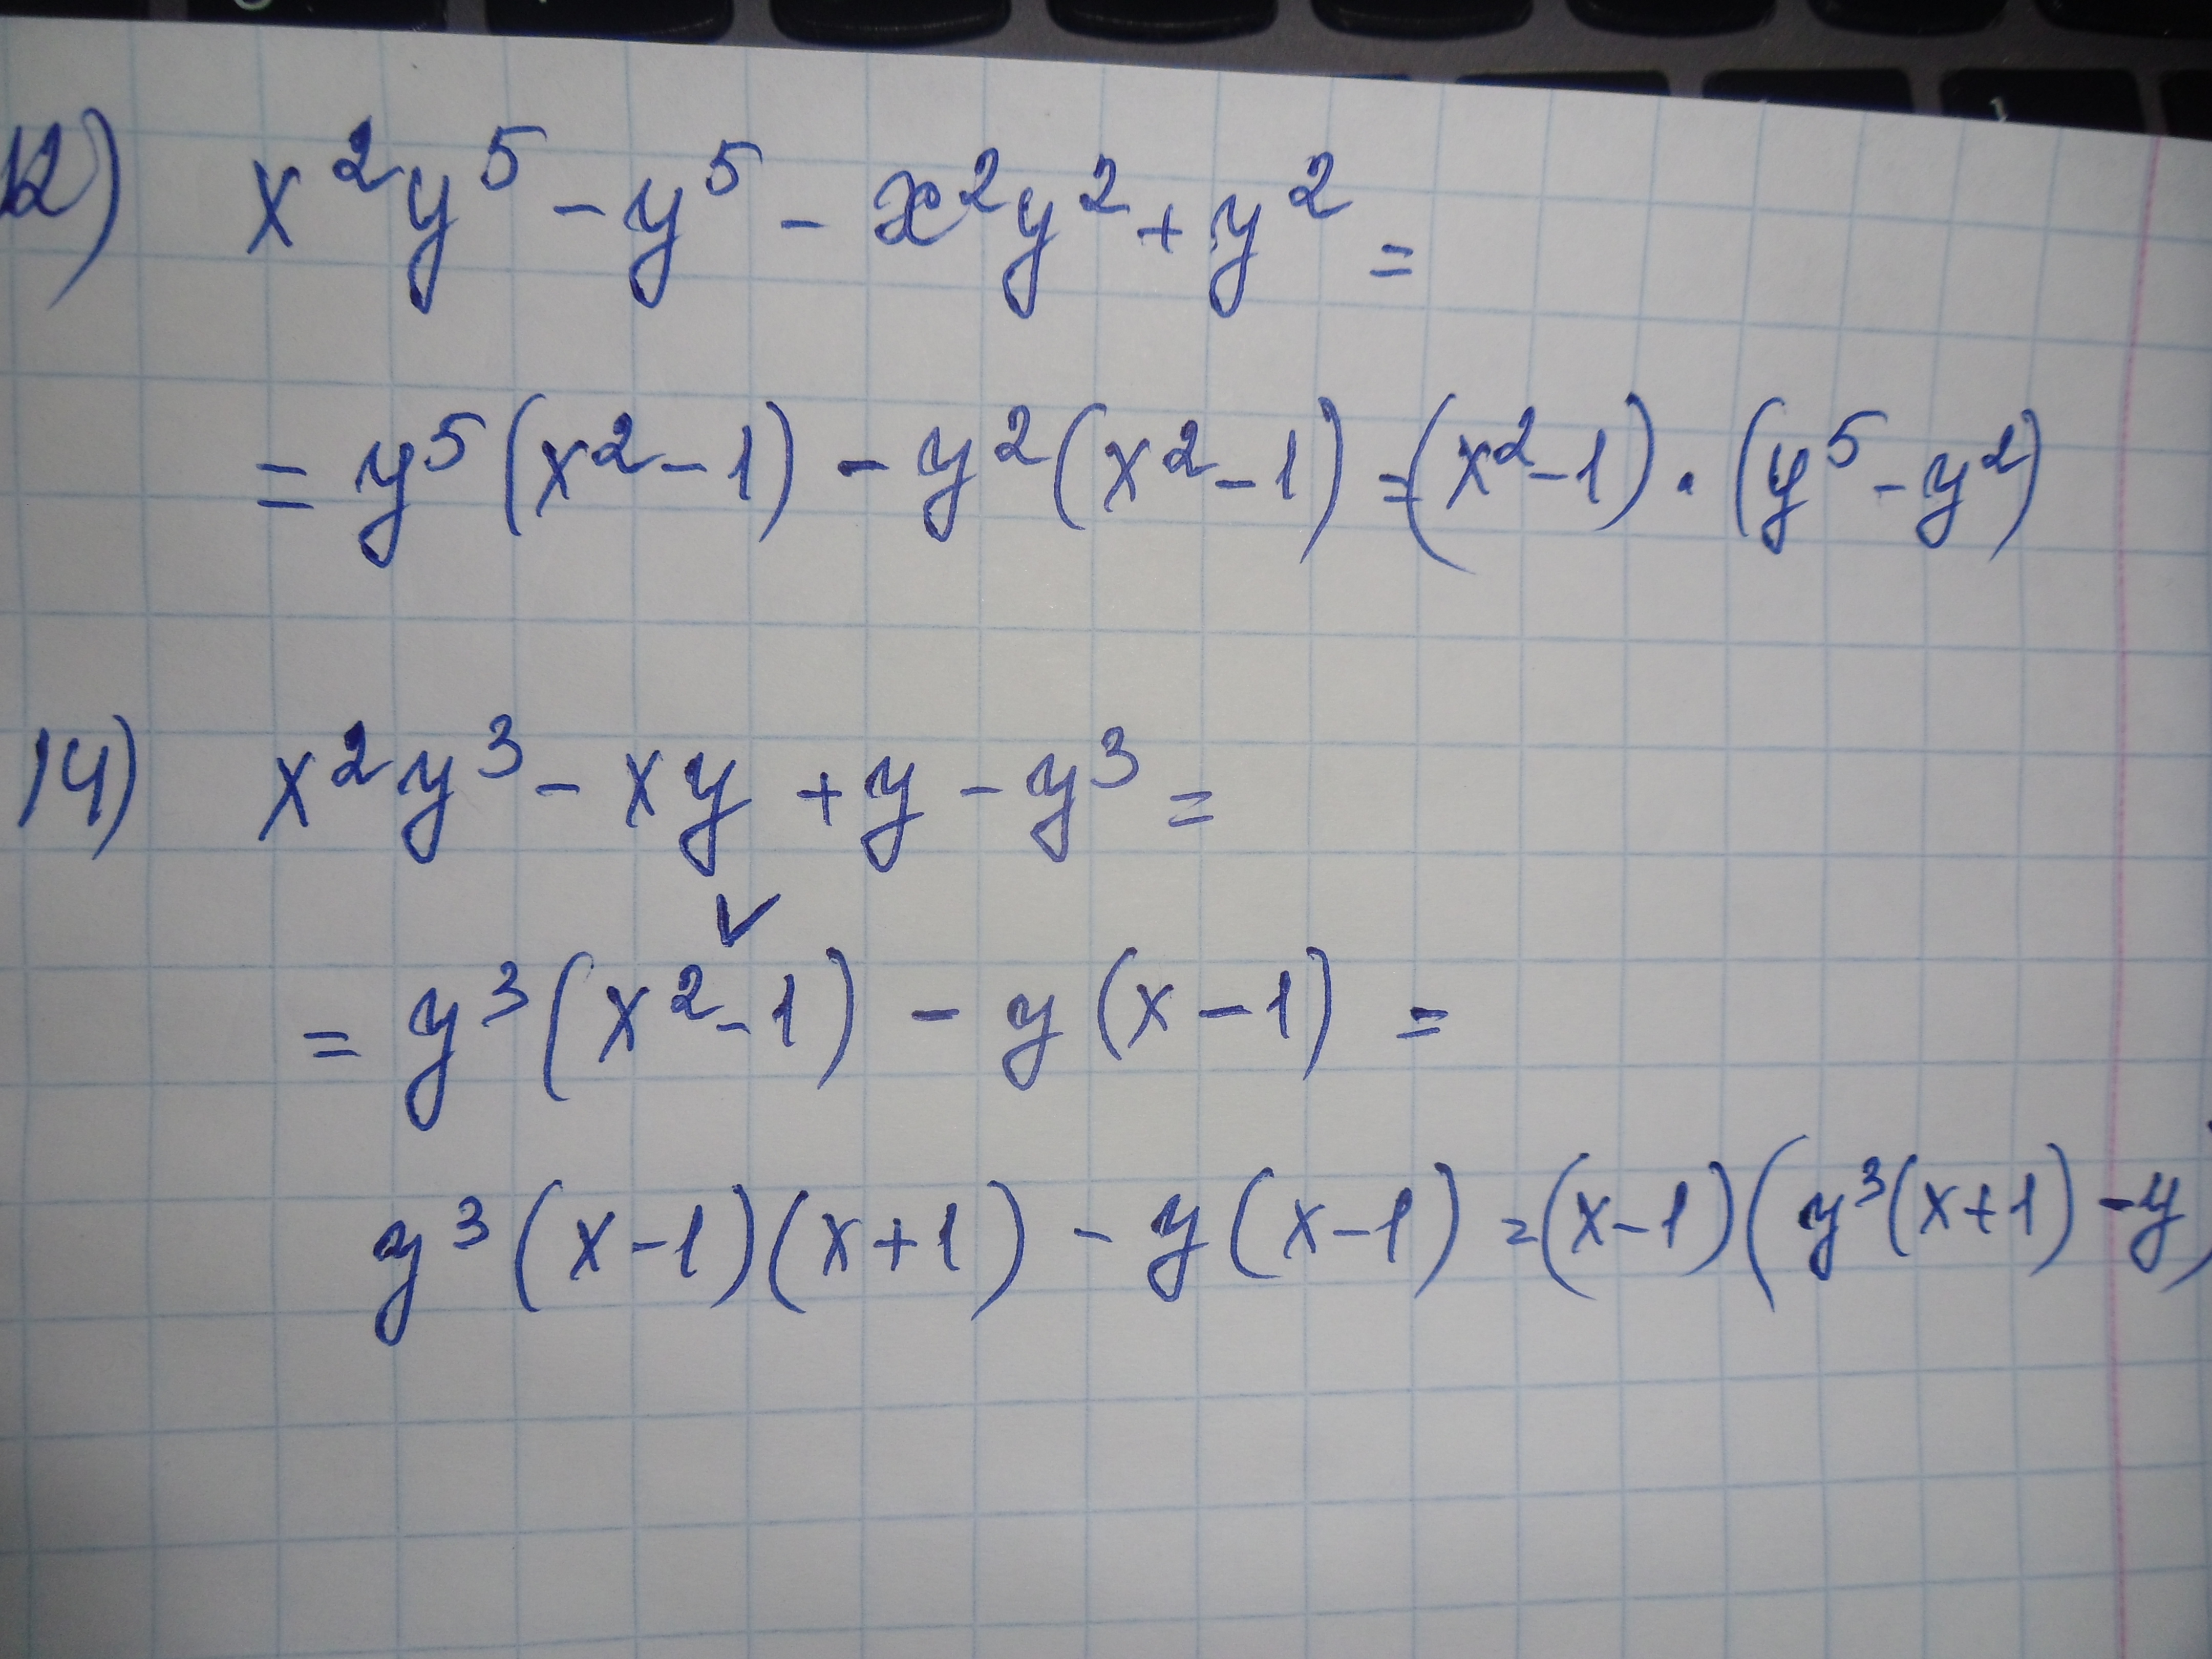 12) x²y⁵ - y⁵ - x²y² + y² =
= y⁵(x² - 1) - y²(x² - 1) = (x² - 1) · (y⁵ - y²)
14) x²y³ - xy + y - y³ =
= y³(x² - 1) - y(x - 1) =
y³(x - 1)(x + 1) - y(x - 1) = (x - 1)(y³(x + 1) - y)